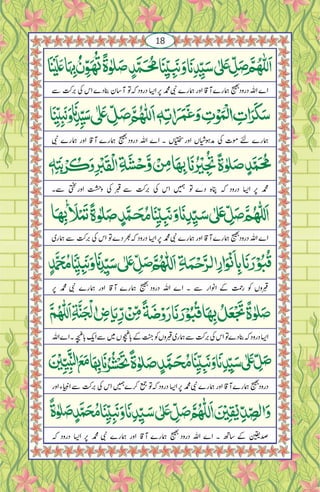 18
اَللّٰهُمَّ صَلِّ عَلٰى سَيِّدِنَا وَنَبِيِّنَا مُحَمَّدٍ صَلٰوةً تُهَوِّنُ بِهَا عَلَيْنَا
اے اللہ درود بھیج ہمارے آقا اور ہمارے نبی محمد پر ایسا درود کہ تو آسان بنادے اس کی برکت سے
سَكَرَاتِ الْمَوْتِ وَغَمَرَاتِهٖ اَللّٰهُمَّ صَلِّ عَلٰى سَيِّدِنَا وَنَبِيِّنَا
ہمارے لئے موت کی مدہوشیاں اور سختیاں ۔ اے اللہ درود بھیج ہمارے آقا اور ہمارے نبی
مُحَمَّدٍ صَلٰوةً تُجِيْرُنَا بِهَا مِنْ وَّحْشَةِ الْقَبْرِ وَكُرْبَتِهٖ
محمد پر ایسا درود کہ پناہ دے تو ہمیں اس کی برکت سے قبر کی وحشت اور سختی سے۔
اَللّٰهُمَّ صَلِّ عَلٰى سَيِّدِنَا وَنَبِيِّنَا مُحَمَّدٍ صَلٰوةً تَمْلَأُ بِهَا
اے اللہ درود بھیج ہمارے آقا اور ہمارے نبی محمد پر ایسا درود کہ بھر دے تو اس کی برکت سے ہماری
قُبُوْرَنَا بِاَنْوَارِ الرَّحْمَةِ اَللّٰهُمَّ صَلِّ عَلٰى سَيِّدِنَا وَنَبِيِّنَا مُحَمَّدٍ
قبروں کو رحمت کے انوار سے ۔ اے اللہ درود بھیج ہمارے آقا اور ہمارے نبی محمد پر
صَلٰوةً تَجْعَلُ بِهَا قُبُوْرَنَا رَوْضَةً مِّنْ رِيَاضِ الْجَنَّةِ اَللّٰهُمَّ
ایسا درود کہ بنا دے تو اس کی برکت سے ہماری قبروں کو جنت کے باغوں میں سے باغیچہ ۔ اے اللہ
صَلِّ عَلٰى سَيِّدِنَا وَنَبِيِّنَا مُحَمَّدٍ صَلٰوةً تَحْشُرُنَا بِهَا مَعَ النَّبِيِّيْنَ
درود بھیج ہمارے آقا اور ہمارے نبی محمد پر ایسا درود کہ تو جمع کرے ہمیں اس کی برکت سے انبیاء اور
وَالصِّدِّيْقِيْنَ اَللّٰهُمَّ صَلِّ عَلٰى سَيِّدِنَا وَنَبِيِّنَا مُحَمَّدٍ صَلٰوةً
صدیقین کے ساتھ ۔ اے اللہ درود بھیج ہمارے آقا اور ہمارے نبی محمد پر ایسا درود کہ